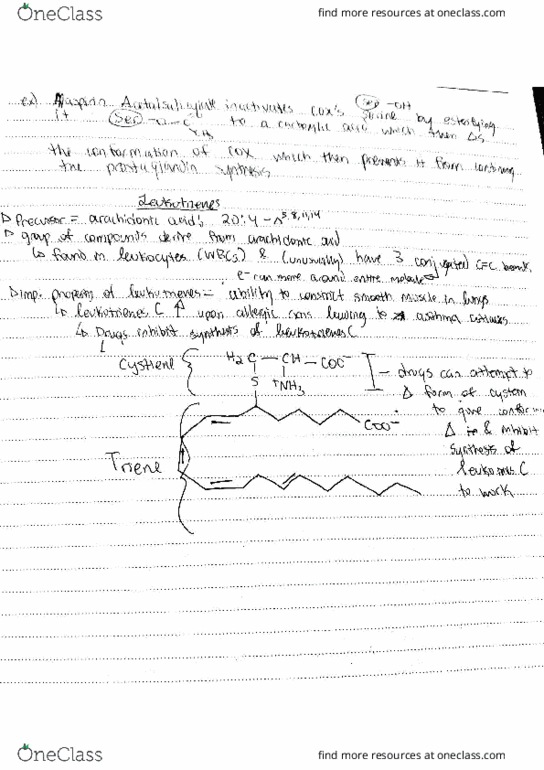 OneClass find more resources at oneclass.com
ex) Aspirin Acetalsalicylate inactivates COX's serine by esterifying
Ser -OH
it Ser -O-C to a carboxylic acid which then Δs
CH3
the conformation of COX which then prevents it from continuing
the prostaglandin synthesis
Leukotrienes
Precursor = arachidonic acid; 20:4 - Δ5,8,11,14
group of compounds derive from arachidonic acid
found in leukocytes (WBCs) & (unusually) have 3 conjugated C=C bonds.
e- can move around entire molecule
imp. property of leukotrienes = ability to constrict smooth muscle in lungs
leukotrienes C ↑ upon allergic rxns leading to asthma attacks
Drugs inhibit synthesis of leukotrienes C
Cystiene { H2C — CH — COO-
S +NH3
- drugs can attempt to
Δ form of cystein
to give conform
COO-
Δ & inhibit
synthesis of
Triene
leukotrienes C
to work
OneClass find more resources at oneclass.com